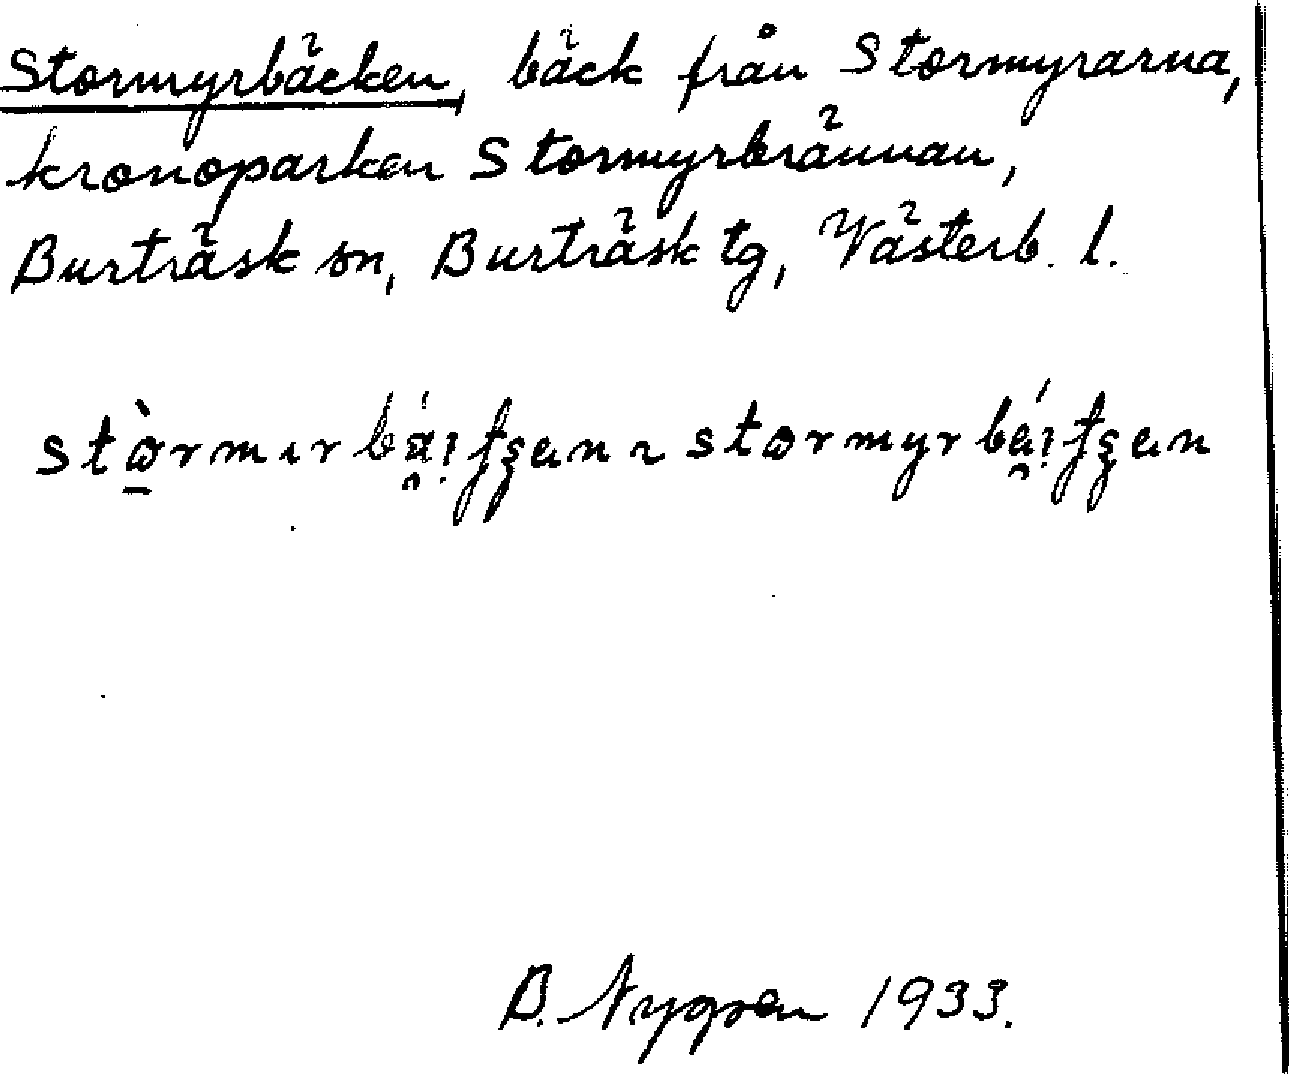 Stormyrbäcken, bäck från Stormyrarna,
kronoparken Stormyrbrännan,
Burträsk sn, Burträsk tg, Västerb. l.
B. Nygren 1933.